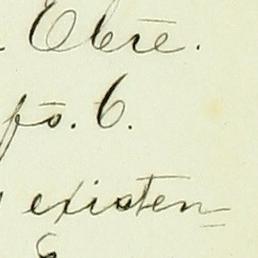 Obre.
fo. 6.
existen=